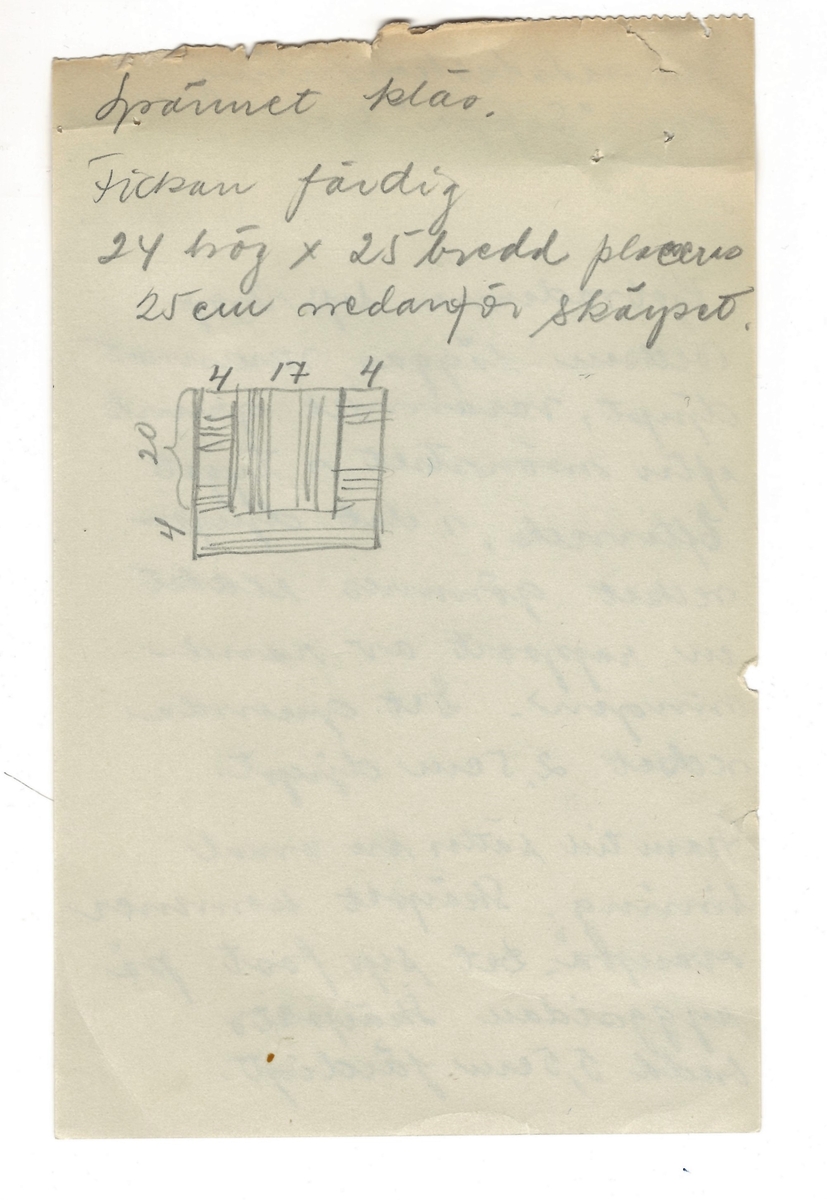 Spännet kläs.
Fickan färdig
24 hög x 25 bredd placeras
25 cm nedanför skärpet.
4 17 4
20
4